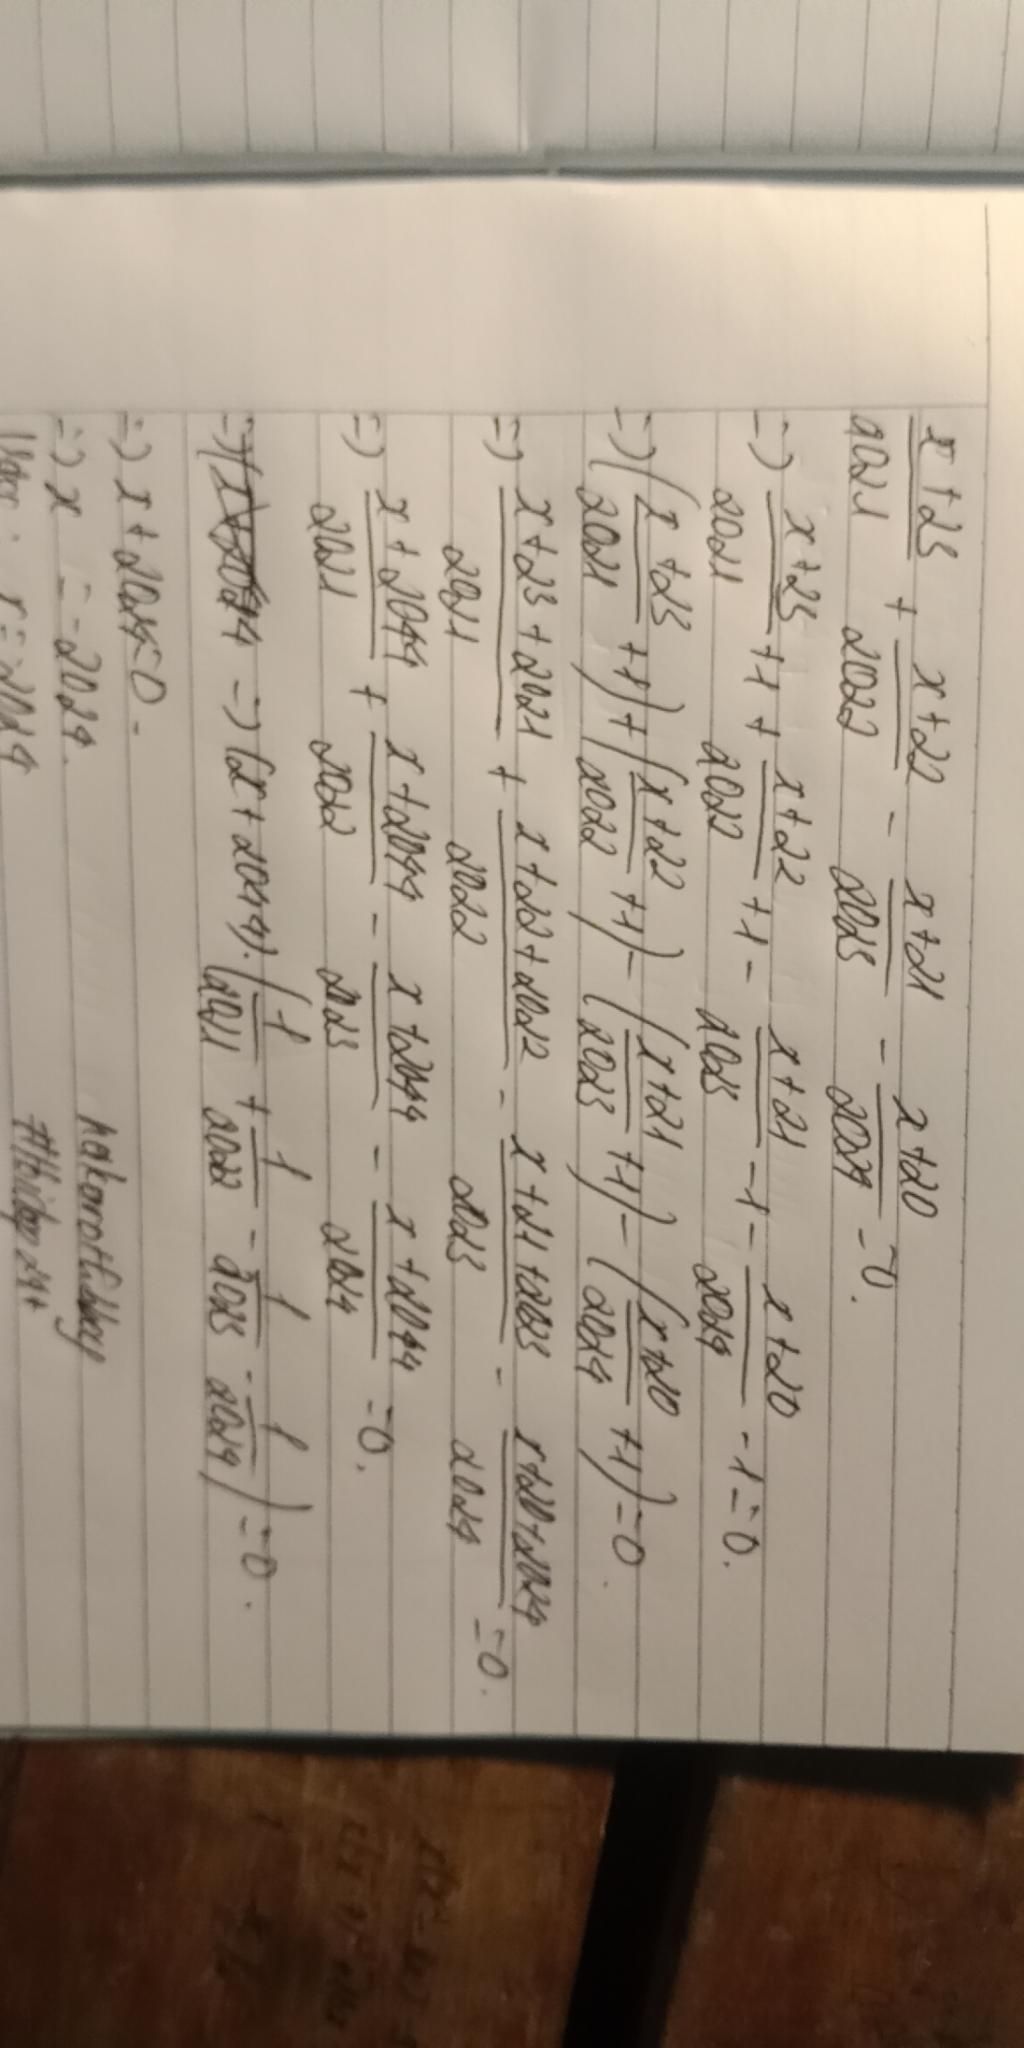 x+23/2021 + x+22/2022 - x+21/2023 - x+20/2024 = 0.
=> x+23/2021 +1 + x+22/2022 +1 - x+21/2023 -1 - x+20/2024 -1 = 0.
=> (x+23/2021 +1) + (x+22/2022 +1) - (x+21/2023 +1) - (x+20/2024 +1) = 0.
=> x+23+2021/2021 + x+22+2022/2022 - x+21+2023/2023 - x+20+2024/2024 = 0.
=> x+2044/2021 + x+2044/2022 - x+2044/2023 - x+2044/2024 = 0.
=> (x+2044). (1/2021 + 1/2022 - 1/2023 - 1/2024) = 0.
=> x + 2044=0.
=> x = -2024.